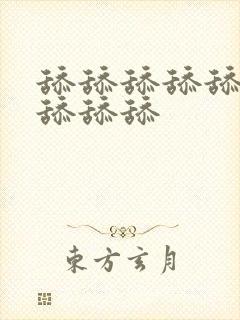 舔舔舔舔舔
舔舔舔
東方玄月